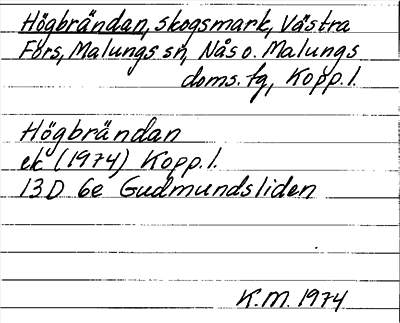 Högbrändan, skogsmark, Västra
Fors, Malungs sn, Nås o. Malungs
doms. tg, Kopp. l.
Högbrändan
ek (1974) Kopp. l.
13D 6e Gudmundsliden
K.M. 1974